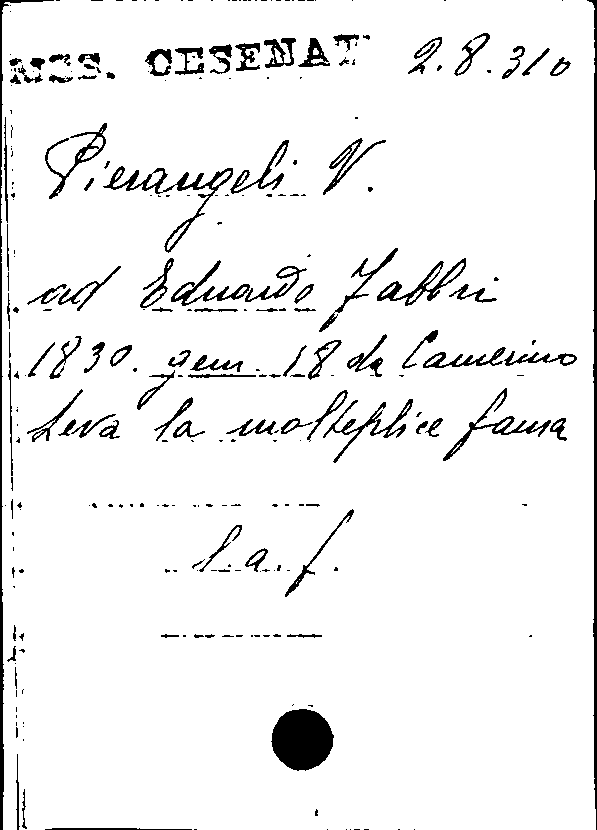 MSS. CESENAT 2.8.310
Pierangeli V.
ad Eduardo Fabbri
1830. gen. 18 da Camerino
Leva la molteplice fama
l.a.f.